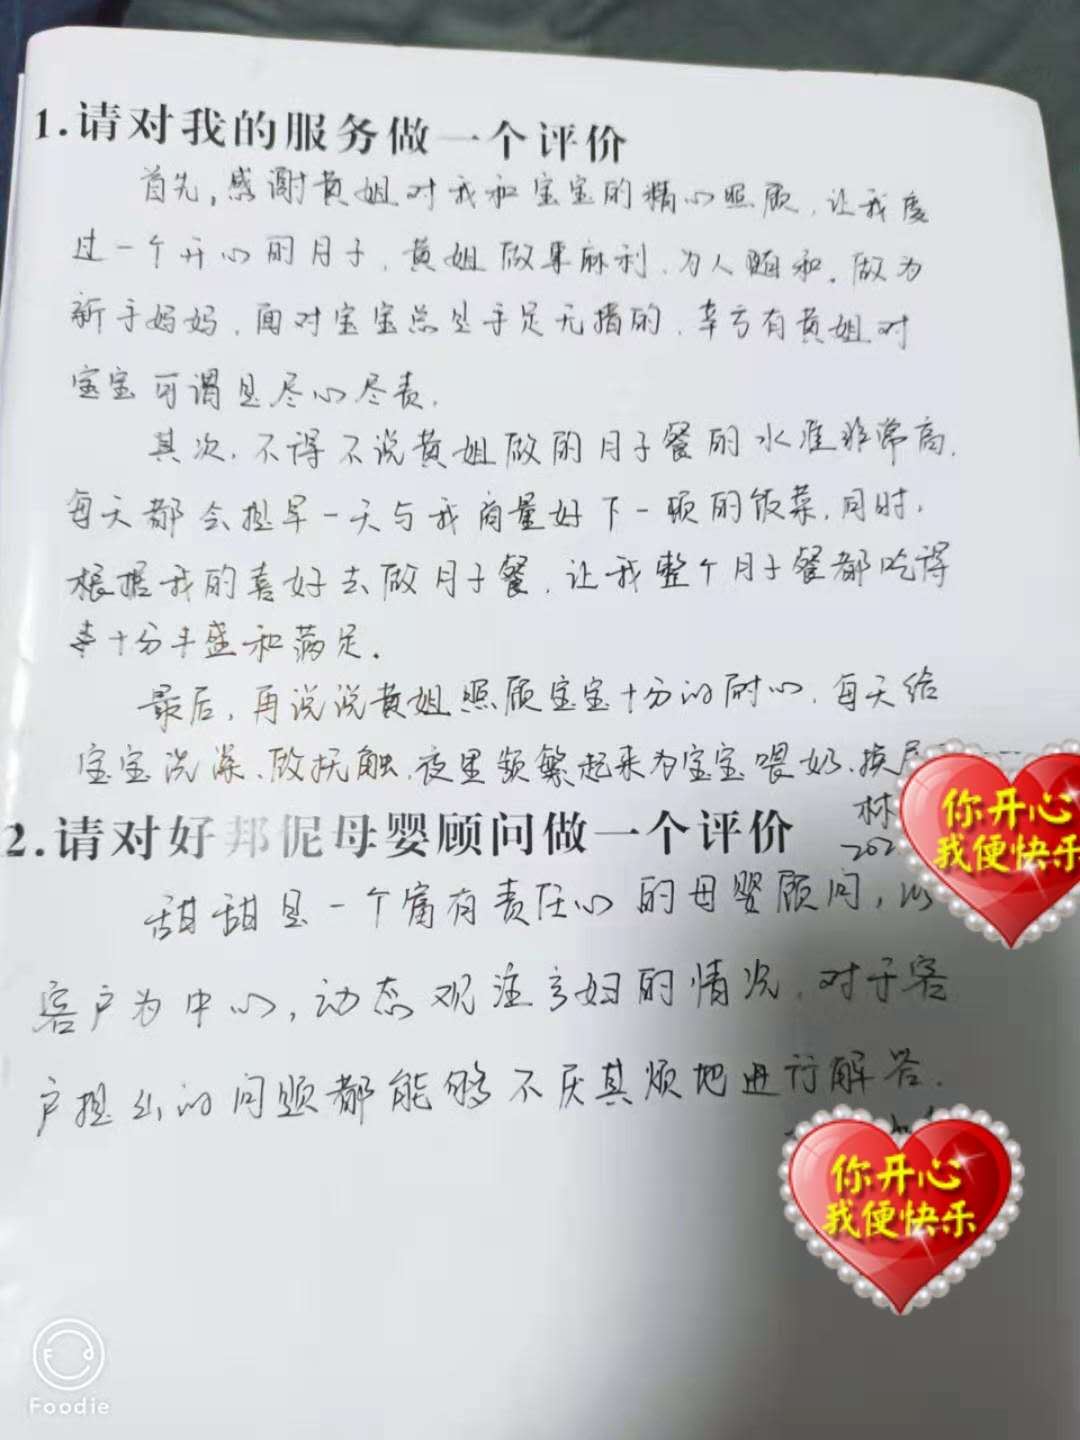 1.请对我的服务做一个评价
首先,感谢黄姐对我和宝宝的精心照顾,让我度
过一个开心的月子,黄姐做事麻利,为人随和。做为
新手妈妈,面对宝宝总是手足无措的,幸亏有黄姐对
宝宝可谓是尽心尽责.
其次,不得不说黄姐做的月子餐的水准非常高,
每天都会提早一天与我商量好下一顿的饭菜,同时,
根据我的喜好去做月子餐,让我整个月子餐都吃得
十分丰盛和满足.
最后,再说说黄姐照顾宝宝十分的耐心,每天给
宝宝洗澡、做抚触,夜里频繁起来为宝宝喂奶、换
林
202
2.请对好邦伲母婴顾问做一个评价
甜甜是一个富有责任心的母婴顾问,以
客户为中心,动态观注产妇的情况,对于客
户提出的问题都能够不厌其烦地进行解答.
你开心
我便快乐
你开心
我便快乐
Foodie